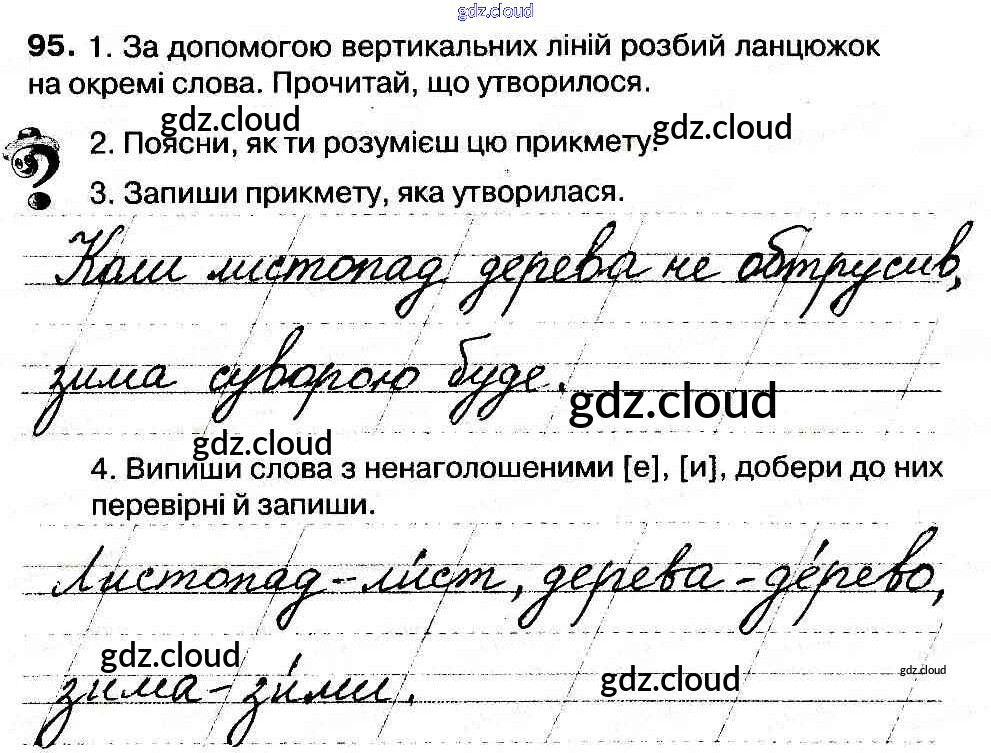 gdz.cloud
95. 1. За допомогою вертикальних ліній розбий ланцюжок
на окремі слова. Прочитай, що утворилося.
gdz.cloud gdz.cloud
2. Поясни, як ти розумієш цю прикмету.
3. Запиши прикмету, яка утворилася.
Коли листопад дерева не обтрусив,
зима суворою буде.
gdz.cloud
gdz.cloud
4. Випиши слова з ненаголошеними [е], [и], добери до них
перевірні й запиши.
Листопад – ли́ст, дерева – де́рево,
gdz.cloud gdz.cloud gdz.cloud
зима – зи́ми.